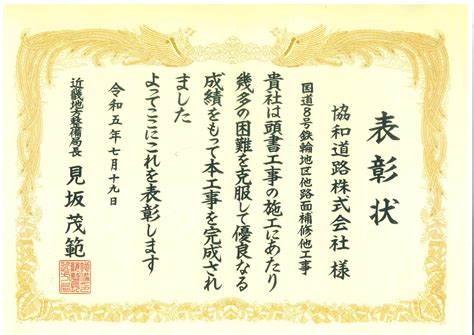 表彰状
協和道路株式会社 様
国道8号鉄輪地区他路面補修他工事
貴社は頭書工事の施工にあたり
幾多の困難を克服して優良なる
成績をもって本工事を完成され
ました
よってここにこれを表彰します
令和五年七月十九日
近畿地方整備局長 見坂茂範